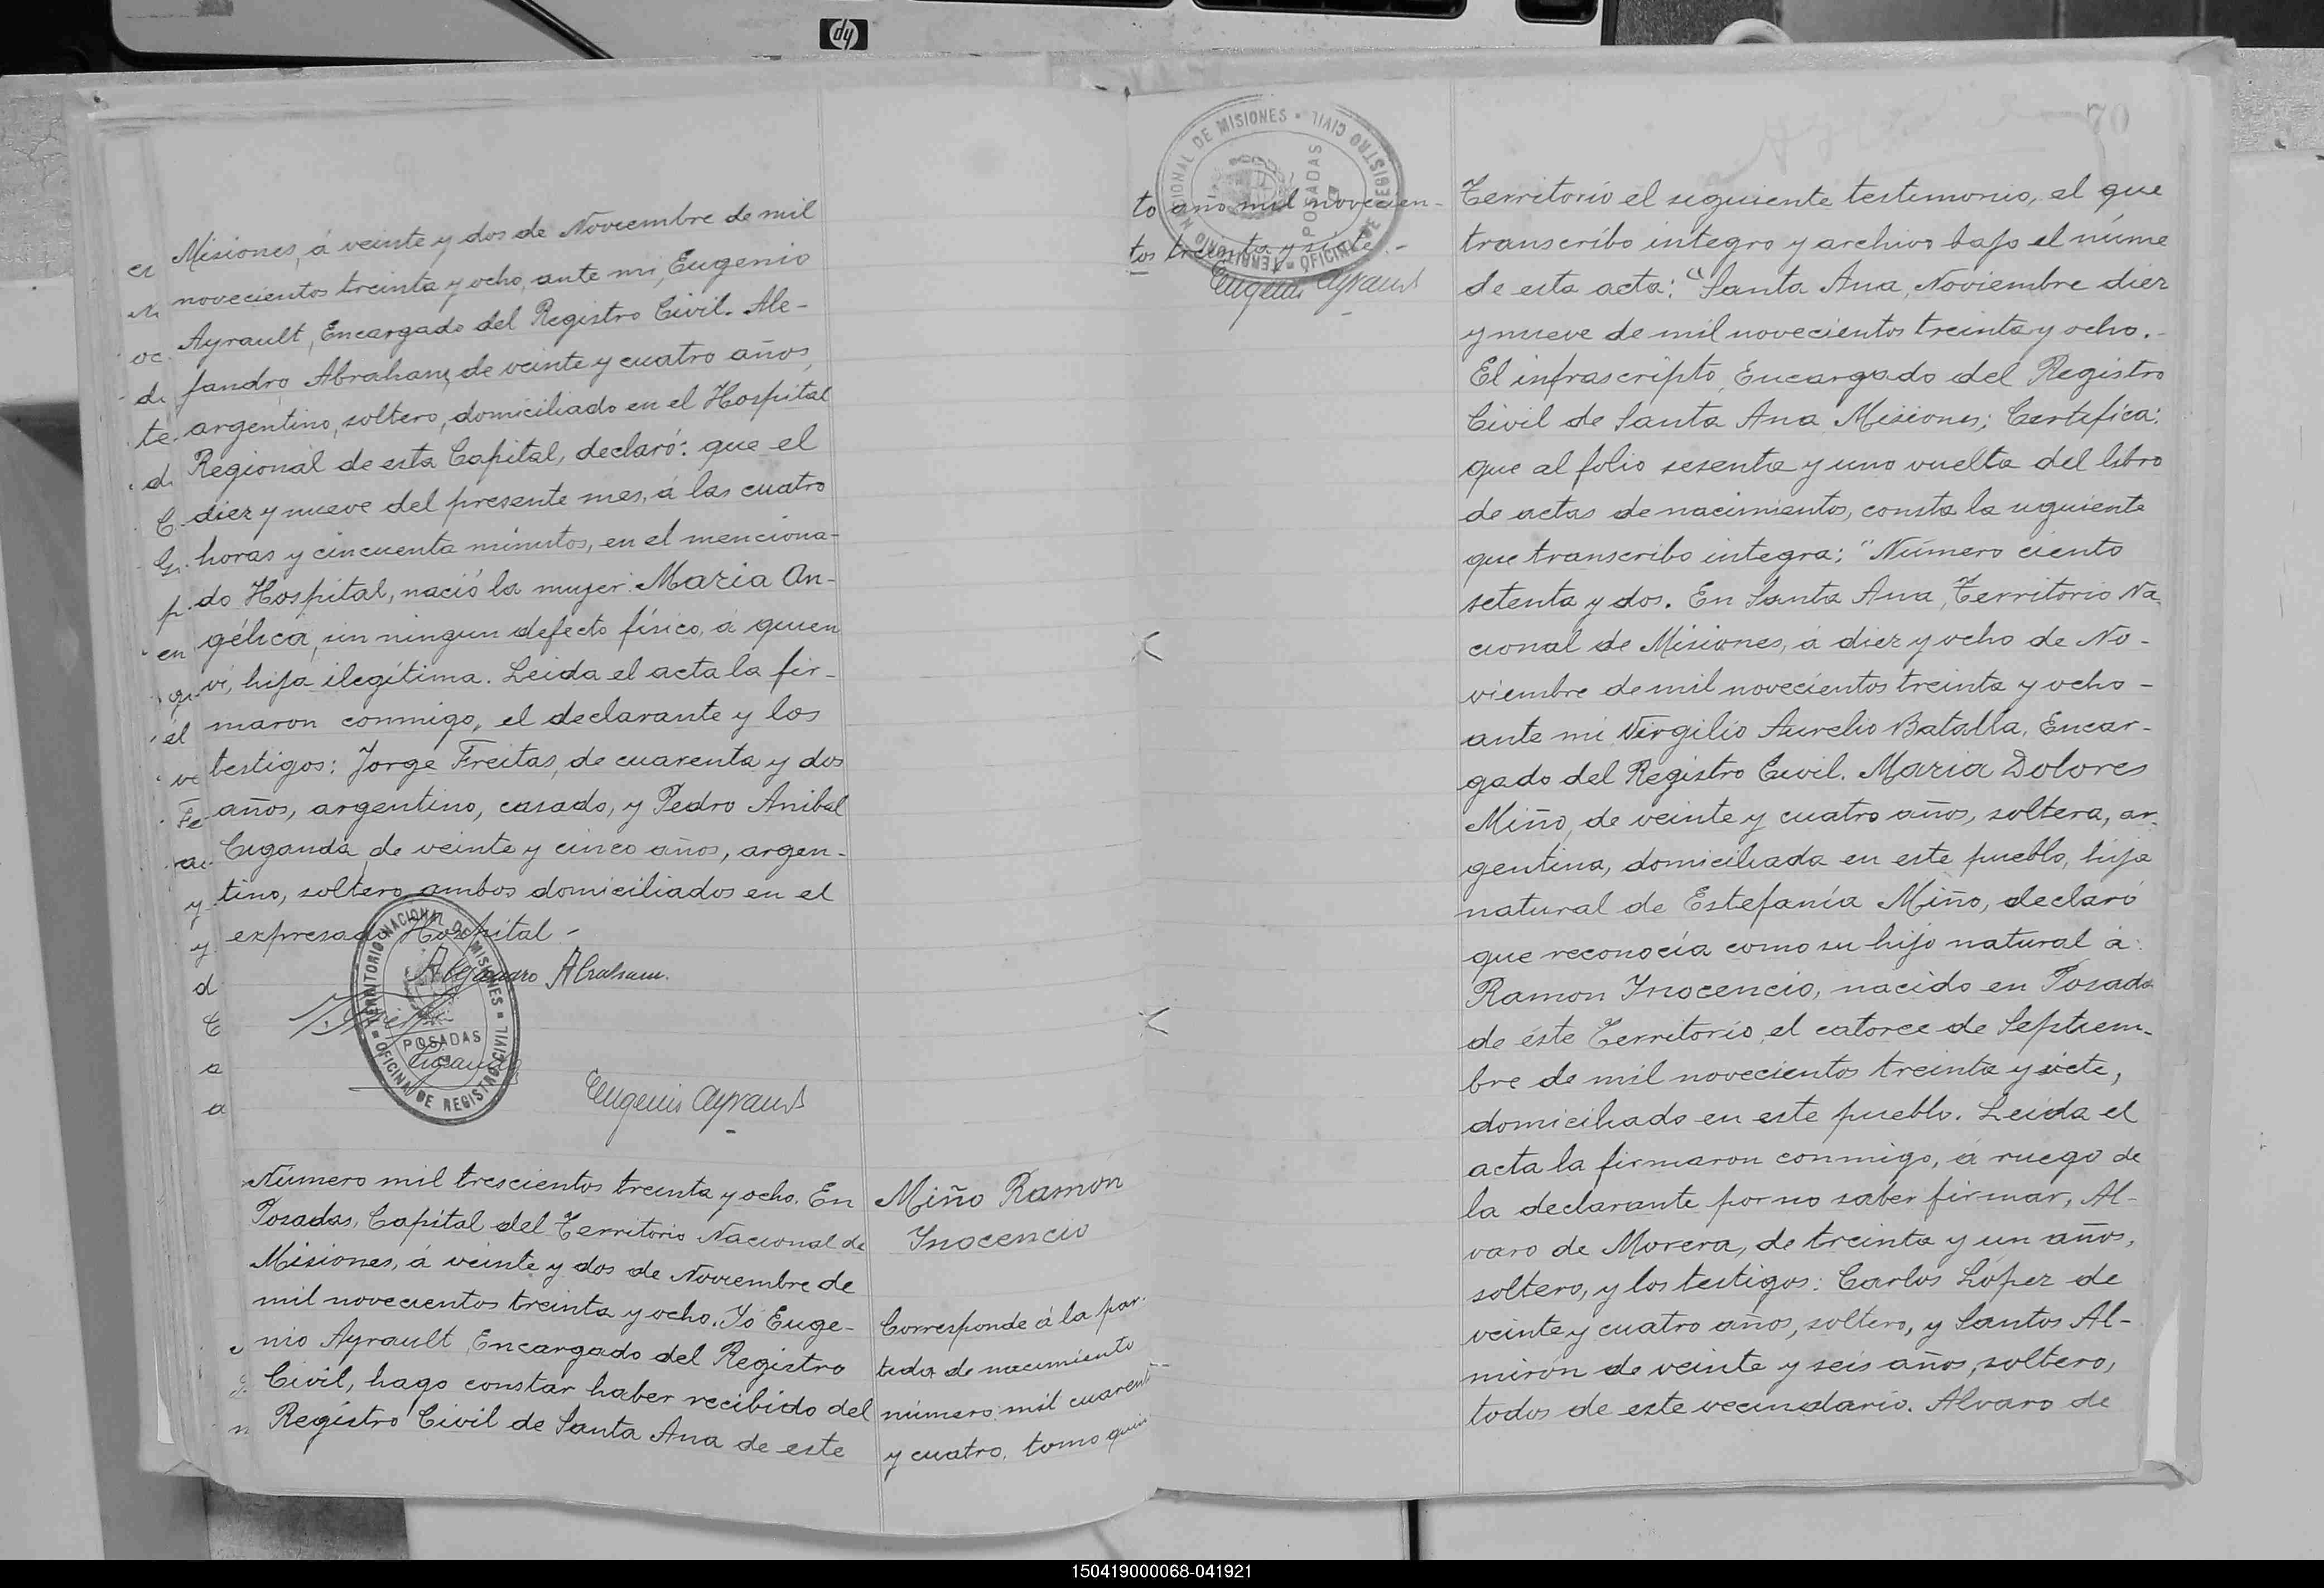 hp
Misiones, á veinte y dos de Noviembre de mil
novecientos treinta y ocho, ante mi, Eugenio
Ayrault, Encargado del Registro Civil. Ale-
jandro Abraham, de veinte y cuatro años,
argentino, soltero, domiciliado en el Hospital
Regional de esta Capital, declaró: que el
diez y nueve del presente mes, á las cuatro
horas y cincuenta minutos, en el menciona-
do Hospital, nació la mujer: Maria An-
gélica, sin ningun defecto físico, á quien
vi, hija ilegítima. Leida el acta la fir-
maron conmigo, el declarante y los
testigos: Jorge Freitas, de cuarenta y dos
años, argentino, casado, y Pedro Anibal
Cuganda, de veinte y cinco años, argen-
tino, soltero, ambos domiciliados en el
expresado Hospital -
Alejandro Abraham.
TERRITORIO NACIONAL DE MISIONES = OFICINA DE REGISTRO CIVIL =
POSADAS
Eugenio Ayrault
Número mil trescientos treinta y ocho. En
Posadas, Capital del Territorio Nacional de
Misiones, á veinte y dos de Noviembre de
mil novecientos treinta y ocho. Yo Euge-
nio Ayrault, Encargado del Registro
Civil, hago constar haber recibido del
Registro Civil de Santa Ana de este
Miño Ramón
Inocencio
Corresponde á la par-
tida de nacimiento
número mil cuarenta
y cuatro, tomo quin
TERRITORIO NACIONAL DE MISIONES = OFICINA DE REGISTRO CIVIL
POSADAS
to año mil novecien-
tos treinta y siete. -
Eugenio Ayrault
70
Territorio el siguiente testimonio, el que
transcribo integro y archivo bajo el núme
de esta acta: "Santa Ana, Noviembre diez
y nueve de mil novecientos treinta y ocho. -
El infrascripto, Encargado del Registro
Civil de Santa Ana Misiones; Certifica:
que al folio sesenta y uno vuelta del libro
de actas de nacimientos, consta la siguiente
que transcribo integra: "Número ciento
setenta y dos. En Santa Ana, Territorio Na
cional de Misiones, á diez y ocho de No-
viembre de mil novecientos treinta y ocho -
ante mi Virgilio Aurelio Batalla, Encar-
gado del Registro Civil. Maria Dolores
Miño, de veinte y cuatro años, soltera, ar-
gentina, domiciliada en este pueblo, hija
natural de Estefanía Miño, declaró
que reconocía como su hijo natural á:
Ramon Inocencio, nacido en Posadas
de éste Territorio, el catorce de Septiem-
bre de mil novecientos treinta y siete,
domiciliado en este pueblo. Leida el
acta la firmaron conmigo, á ruego de
la declarante por no saber firmar, Al-
varo de Morera, de treinta y un años,
soltero, y los testigos: Carlos López de
veinte y cuatro años, soltero, y Santos Al-
mirón de veinte y seis años, soltero,
todos de este vecindario. Alvaro de
150419000068-041921